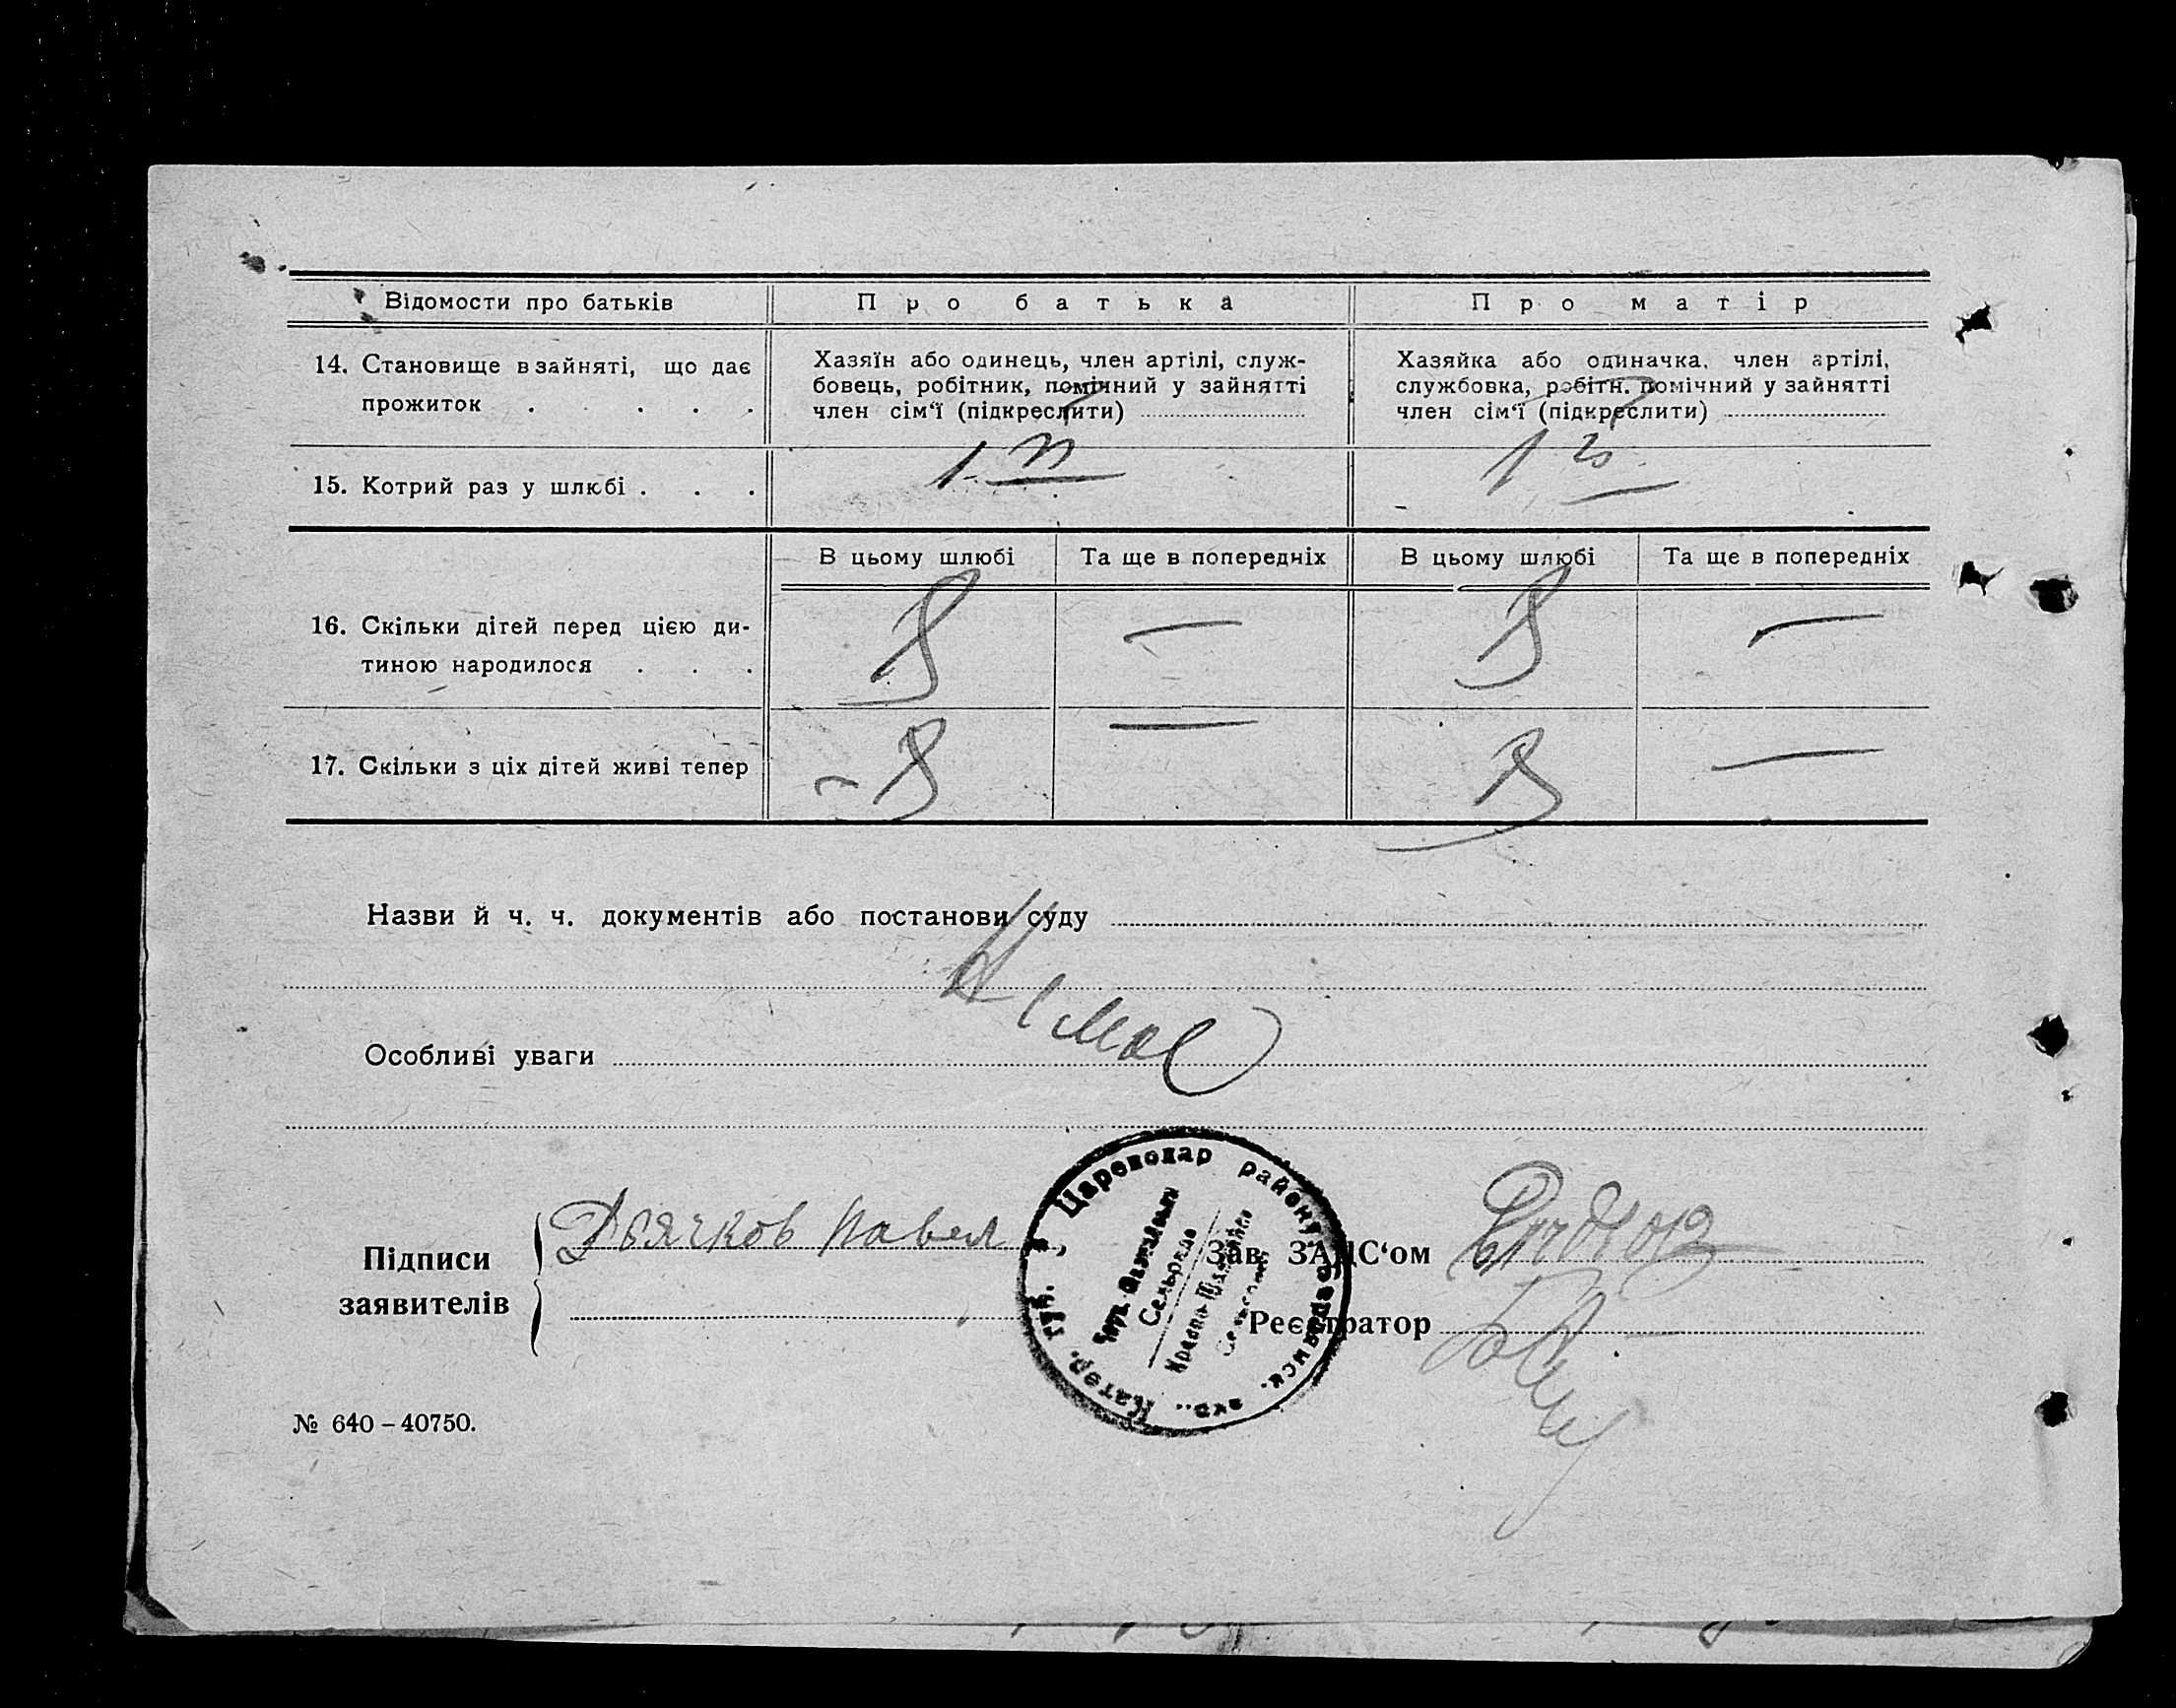 Відомости про батьків
Про батька
Про матір
14. Становище в зайняті, що дає
прожиток . . . . .
Хазяїн або одинець, член артілі, служ-
бовець, робітник, помічний у зайнятті
член сім'ї (підкреслити)
Хазяйка або одиначка, член артілі,
службовка, робітн. помічний у зайнятті
член сім'ї (підкреслити)
15. Котрий раз у шлюбі . . .
1
1
В цьому шлюбі
Та ще в попередніх
В цьому шлюбі
Та ще в попередніх
16. Скільки дітей перед цією ди-
тиною народилося . . .
8 — 8 —
17. Скільки з ціх дітей живі тепер
8 — 8 —
Назви й ч. ч. документів або постанови суду
Німає
Особливі уваги
Підписи
заявителів
Дьячков Павел
Зав. ЗАГС'ом
Реєстратор
Катер. губ. Цареконар району
Сельрада
№ 640 – 40750.